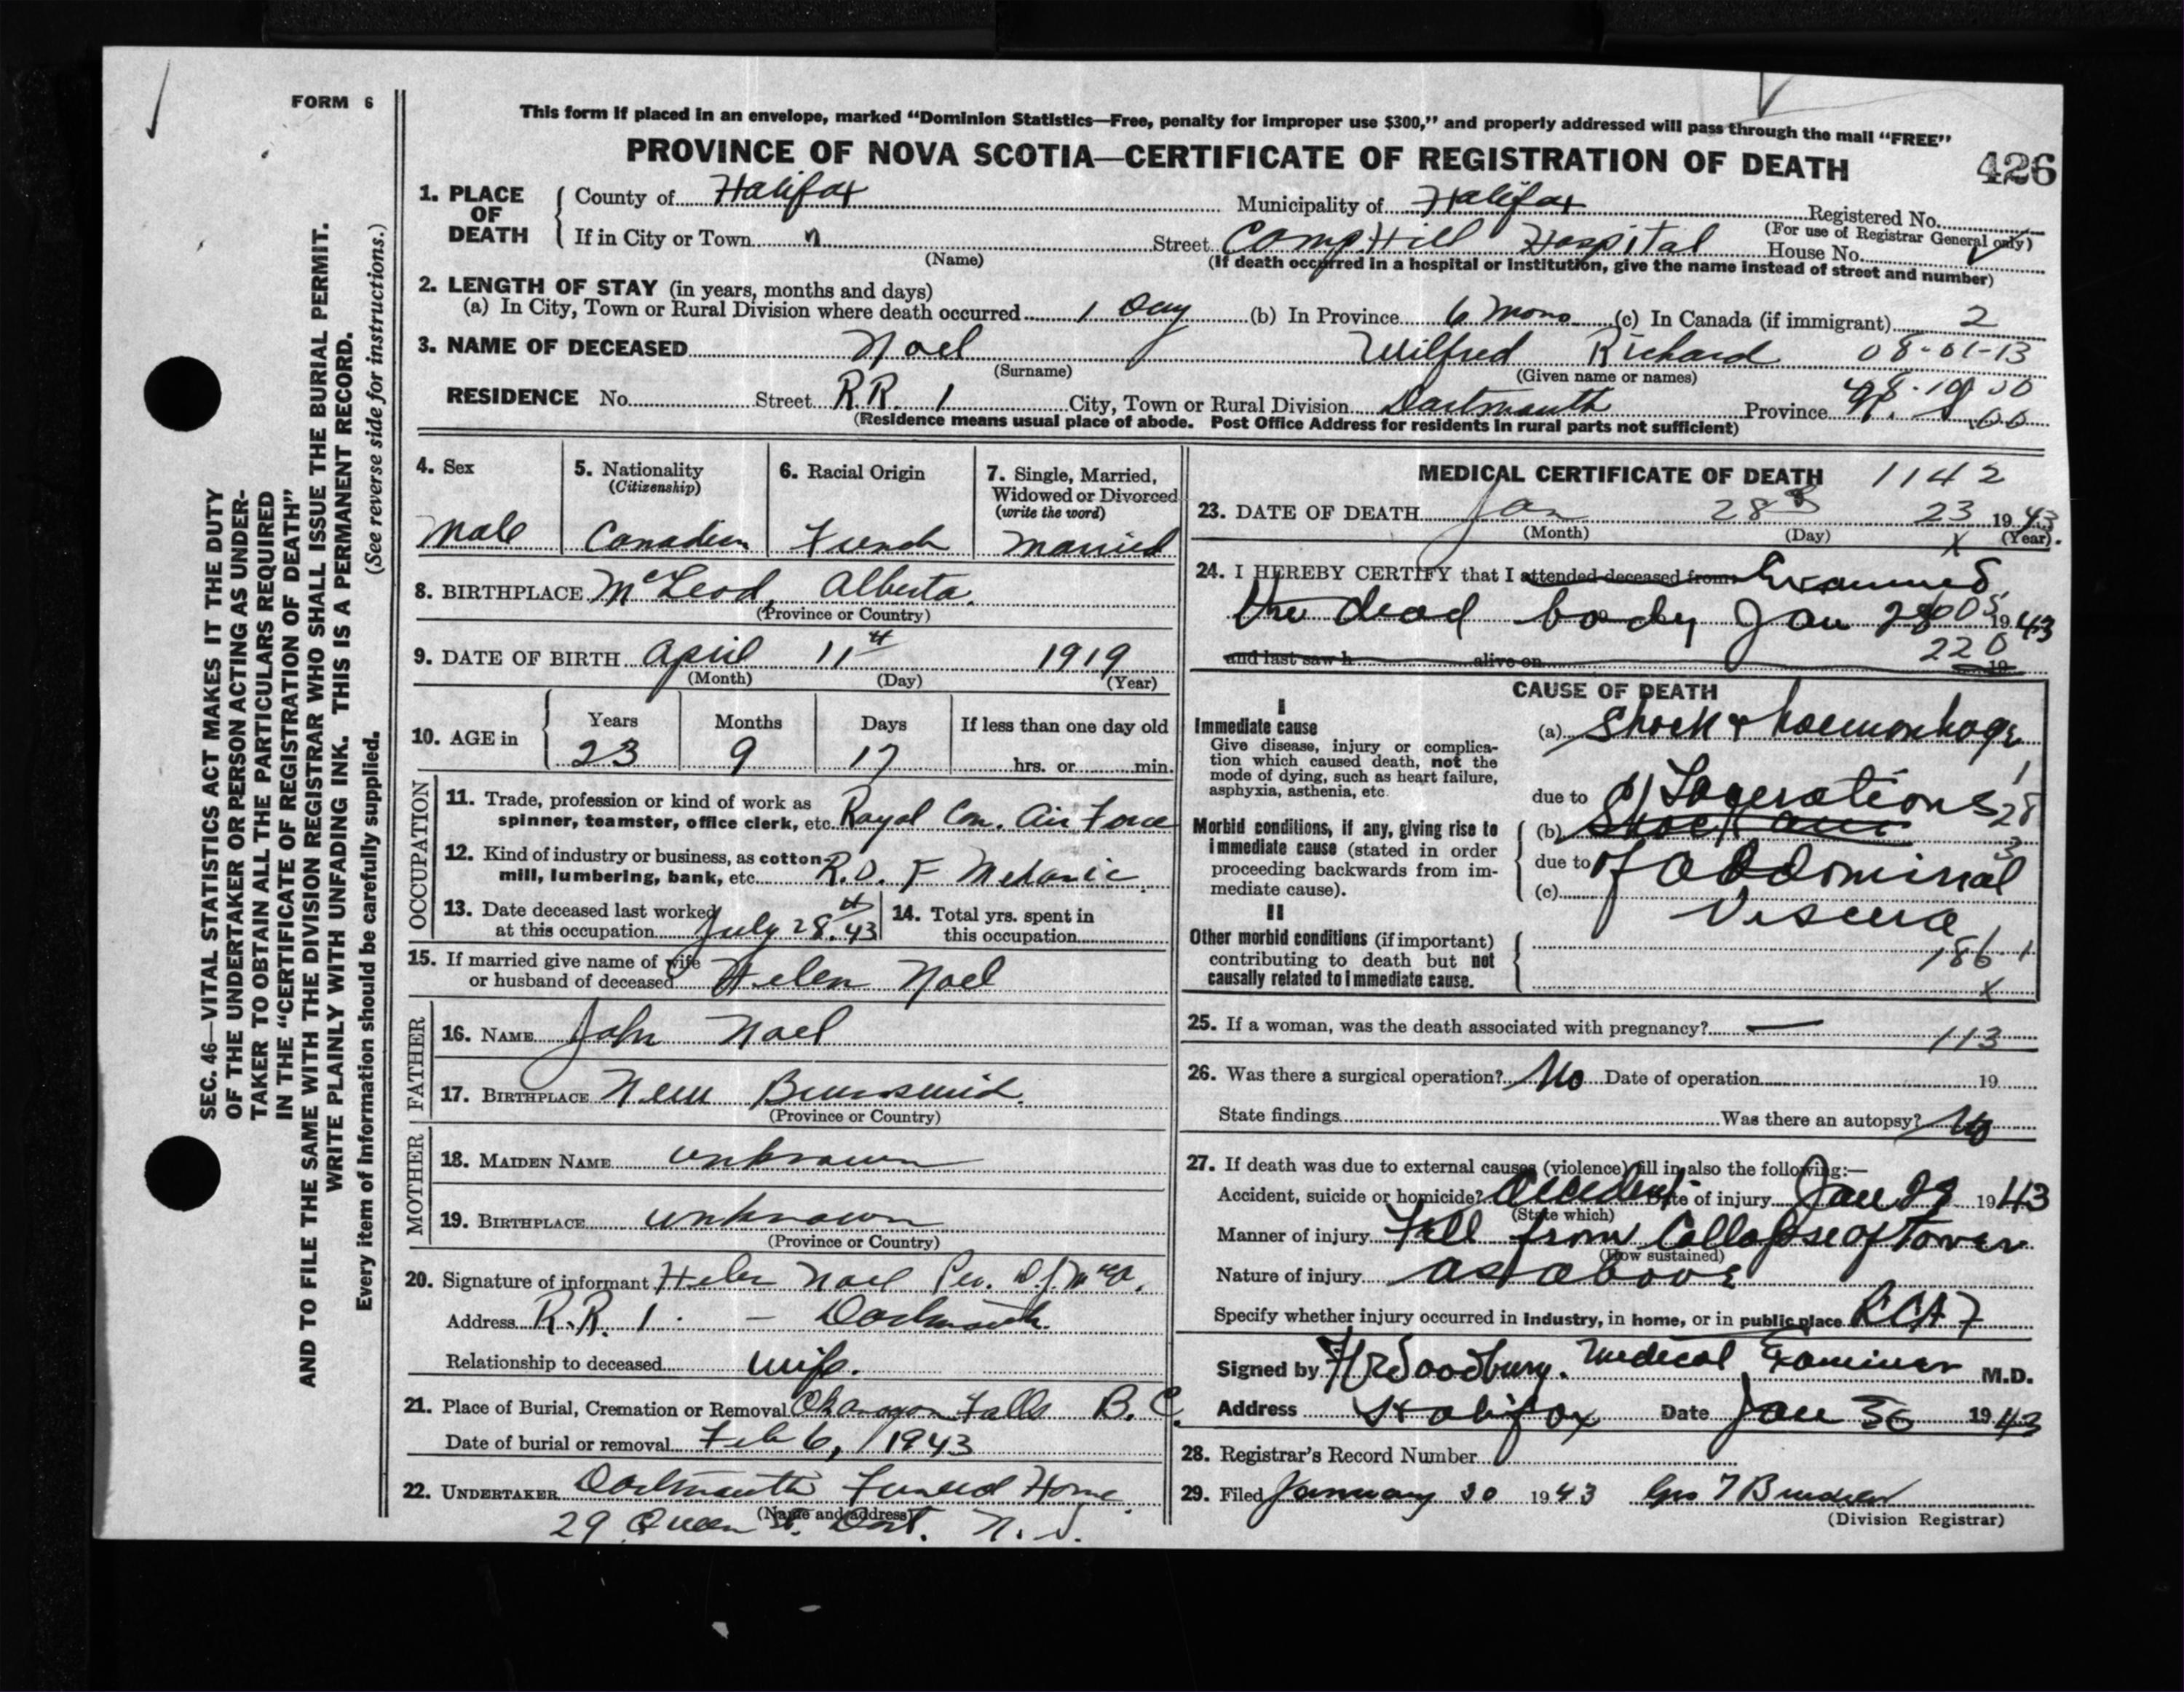 FORM 6
This form if placed in an envelope, marked “Dominion Statistics—Free, penalty for improper use $300,” and properly addressed will pass through the mail “FREE”
PROVINCE OF NOVA SCOTIA—CERTIFICATE OF REGISTRATION OF DEATH
426
1. PLACE OF DEATH
County of Halifax Municipality of Halifax Registered No.
(For use of Registrar General only)
If in City or Town (Name) Street Camp Hill Hospital House No.
(If death occurred in a hospital or institution, give the name instead of street and number)
2. LENGTH OF STAY (in years, months and days)
(a) In City, Town or Rural Division where death occurred 1 Day (b) In Province 6 Mons (c) In Canada (if immigrant) 2
3. NAME OF DECEASED Noel Wilfred Richard 08-01-13
(Surname) (Given name or names)
RESIDENCE No. Street R.R. 1 City, Town or Rural Division Dartmouth Province
(Residence means usual place of abode. Post Office Address for residents in rural parts not sufficient)
4. Sex
Male
5. Nationality
(Citizenship)
Canadian
6. Racial Origin
French
7. Single, Married,
Widowed or Divorced
(write the word)
Married
8. BIRTHPLACE McLeod, Alberta.
(Province or Country)
9. DATE OF BIRTH April 11th 1919
(Month) (Day) (Year)
10. AGE in Years Months Days If less than one day old
23 9 17 hrs. or min.
OCCUPATION
11. Trade, profession or kind of work as
spinner, teamster, office clerk, etc. Royal Can. Air Force
12. Kind of industry or business, as cotton-
mill, lumbering, bank, etc. R.D.F Mechanic
13. Date deceased last worked
at this occupation July 28th 43
14. Total yrs. spent in
this occupation
15. If married give name of wife
or husband of deceased Helen Noel
FATHER
16. NAME John Noel
17. BIRTHPLACE New Brunswick.
(Province or Country)
MOTHER
18. MAIDEN NAME unknown
19. BIRTHPLACE unknown
(Province or Country)
20. Signature of informant Helen Noel Per.
Address R.R. 1. — Dartmouth.
Relationship to deceased wife.
21. Place of Burial, Cremation or Removal Okanagan Falls B.C.
Date of burial or removal Feb 6, 1943
22. UNDERTAKER Dartmouth Funeral Home
(Name and address)
29 Queen St. Dart. N.S.
MEDICAL CERTIFICATE OF DEATH 1142
23. DATE OF DEATH Jan 28 23 1943
(Month) (Day) (Year).
24. I HEREBY CERTIFY that I attended deceased from Examined
the dead body Jan 28 1943
and last saw h alive on 19
220
CAUSE OF DEATH
I
Immediate cause
Give disease, injury or complica-
tion which caused death, not the
mode of dying, such as heart failure,
asphyxia, asthenia, etc.
(a) Shock & haemorrhage
due to Lacerations
(b) Shock and
due to of abdominal
(c)
Viscera
Morbid conditions, if any, giving rise to
immediate cause (stated in order
proceeding backwards from im-
mediate cause).
II
Other morbid conditions (if important)
contributing to death but not
causally related to immediate cause.
1
28
3
186 1
X
25. If a woman, was the death associated with pregnancy? — 113
26. Was there a surgical operation? No Date of operation 19
State findings Was there an autopsy? No
27. If death was due to external causes (violence) fill in also the following:—
Accident, suicide or homicide? Accident Date of injury Jan 28 1943
(State which)
Manner of injury Fall from Collapse of Tower
(How sustained)
Nature of injury as above
Specify whether injury occurred in industry, in home, or in public place RCAF
Signed by Woodbury. Medical Examiner M.D.
Address Halifax Date Jan 30 1943
28. Registrar's Record Number
29. Filed January 30 1943
(Division Registrar)
SEC. 46—VITAL STATISTICS ACT MAKES IT THE DUTY
OF THE UNDERTAKER OR PERSON ACTING AS UNDER-
TAKER TO OBTAIN ALL THE PARTICULARS REQUIRED
IN THE “CERTIFICATE OF REGISTRATION OF DEATH”
AND TO FILE THE SAME WITH THE DIVISION REGISTRAR WHO SHALL ISSUE THE BURIAL PERMIT.
WRITE PLAINLY WITH UNFADING INK. THIS IS A PERMANENT RECORD.
Every item of information should be carefully supplied. (See reverse side for instructions.)